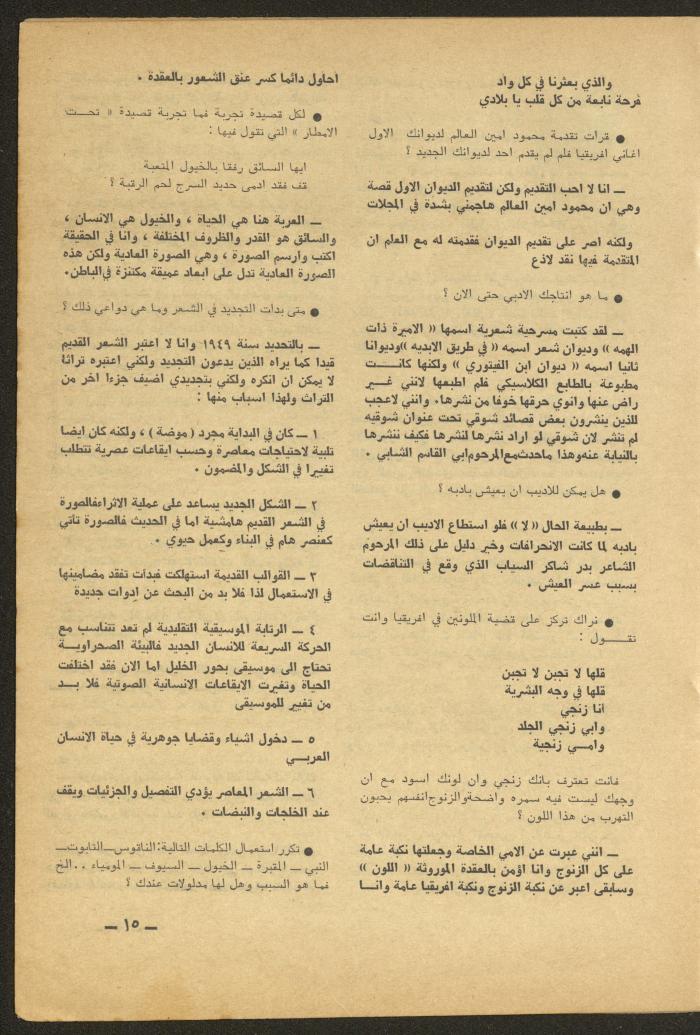 والذي بعثرنا في كل واد
فرحة نابعة من كل قلب يا بلادي
● قرات تقدمة محمود امين العالم لديوانك الاول
اغاني افريقيا فلم لم يقدم احد لديوانك الجديد ؟
ــ انا لا احب التقديم ولكن لتقديم الديوان الاول قصة
وهي ان محمود امين العالم هاجمني بشدة في المجلات
ولكنه اصر على تقديم الديوان فقدمته له مع العلم ان
المتقدمة فيها نقد لاذع
● ما هو انتاجك الادبي حتى الان ؟
ــ لقد كتبت مسرحية شعرية اسمها (( الاميرة ذات
الهمه )) وديوان شعر اسمه (( في طريق الابديه ))وديوانا
ثانيا اسمه (( ديوان ابن الفيتوري )) ولكنها كانــــت
مطبوعة بالطابع الكلاسيكي فلم اطبعها لانني غــير
راض عنها وانوي حرقها خوفا من نشرها، وانني لاعجب
للذين ينشرون بعض قصائد شوقي تحت عنوان شوقيه
لم تنشر لان شوقي لو اراد نشرها لنشرها فكيف ننشرها
بالنيابة عنهوهذا ماحدثمعالمرحومابي القاسم الشابي .
● هل يمكن للاديب ان يعيش بادبه ؟
ــ بطبيعة الحال (( لا )) فلو استطاع الاديب ان يعيش
بادبه لما كانت الانحرافات وخير دليل على ذلك المرحوم
الشاعر بدر شاكر السياب الذي وقع في التناقضات
بسبب عسر العيش .
● نراك تركز على قضية الملونين في افريقيا وانت
تقـــــول :
قلها لا تجبن لا تجبن
قلها في وجه البشرية
انا زنجي
وابي زنجي الجلد
وامـــي زنجية
فانت تعترف بانك زنجي وان لونك اسود مع ان
وجهك ليست فيه سمره واضحةوالزنوجانفسهم يحبون
التهرب من هذا اللون ؟
ــ انني عبرت عن الامي الخاصة وجعلتها نكبة عامة
على كل الزنوج وانا اؤمن بالعقدة الموروثة (( اللون ))
وسابقى اعبر عن نكبة الزنوج ونكبة افريقيا عامة وانـــا
احاول دائما كسر عنق الشعور بالعقدة .
● لكل قصيدة تجربة فما تجربة قصيدة « تحـــت
الامطار » التي تقول فيها :
ايها السائق رفقا بالخيول المتعبة
قف فقد ادمى حديد السرج لحم الرقبة ؟
ــ العربة هنا هي الحياة ، والخيول هي الانسان ،
والسائق هو القدر والظروف المختلفة ، وانا في الحقيقة
اكتب وارسم الصورة ، وهي الصورة العادية ولكن هذه
الصورة العادية تدل على ابعاد عميقة مكتنزة فيالباطن.
● متى بدات التجديد في الشعر وما هي دواعي ذلك ؟
ــ بالتحديد سنة ١٩٤٩ وانا لا اعتبر الشعر القديم
قيدا كما يراه الذين يدعون التجديد ولكني اعتبره تراثا
لا يمكن ان انكره ولكني بتجديدي اضيف جزءا اخر من
التراث ولهذا اسباب منها :
١ ــ كان في البداية مجرد ( موضة ) ، ولكنه كان ايضا
تلبية لاحتياجات معاصرة وحسب ايقاعات عصرية تتطلب
تغيرا في الشكل والمضمون .
٢ ــ الشكل الجديد يساعد على عملية الاثراءفالصورة
في الشعر القديم هامشية اما في الحديث فالصورة تاتي
كعنصر هام في البناء وكعمل حيوي .
٣ ــ القوالب القديمة استهلكت فبدات تفقد مضامينها
في الاستعمال لذا فلا بد من البحث عن ادوات جديدة
٤ ــ الرتابة الموسيقية التقليدية لم تعد تتناسب مع
الحركة السريعة للانسان الجديد فالبيئة الصحراويــة
تحتاج الى موسيقى بحور الخليل اما الان فقد اختلفت
الحياة وتغيرت الايقاعات الانسانية الصوتية فلا بـــد
من تغيير للموسيقى
٥ ــ دخول اشياء وقضايا جوهرية في حياة الانسان
العربـــي
٦ ــ الشعر المعاصر يؤدي التفصيل والجزئيات ويقف
عند الخلجات والنبضات .
● تكرر استعمال الكلمات التالية:الناقوســالتابوتــ
النبي ــ المقبرة ــ الخيول ــ السيوف ــ المومياء ..الخ
فما هو السبب وهل لها مدلولات عندك ؟
ــ ١٥ ــ